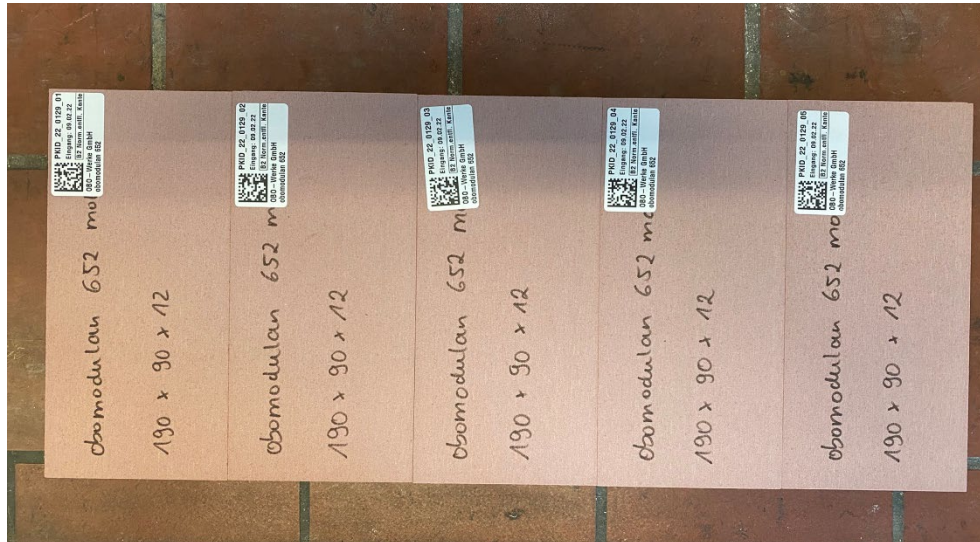 PKID_22_0129_01
Eingang: 09.02.22
B2 Norm.entfl. Kante
OBO-Werke GmbH
obomodulan 652
obomodulan 652
190 x 90 x 12
PKID_22_0129_02
Eingang: 09.02.22
B2 Norm.entfl. Kante
OBO-Werke GmbH
obomodulan 652
obomodulan 652
190 x 90 x 12
PKID_22_0129_03
Eingang: 09.02.22
B2 Norm.entfl. Kante
OBO-Werke GmbH
obomodulan 652
obomodulan 652
190 x 90 x 12
PKID_22_0129_04
Eingang: 09.02.22
B2 Norm.entfl. Kante
OBO-Werke GmbH
obomodulan 652
obomodulan 652
190 x 90 x 12
PKID_22_0129_05
Eingang: 09.02.22
B2 Norm.entfl. Kante
OBO-Werke GmbH
obomodulan 652
obomodulan 652
190 x 90 x 12